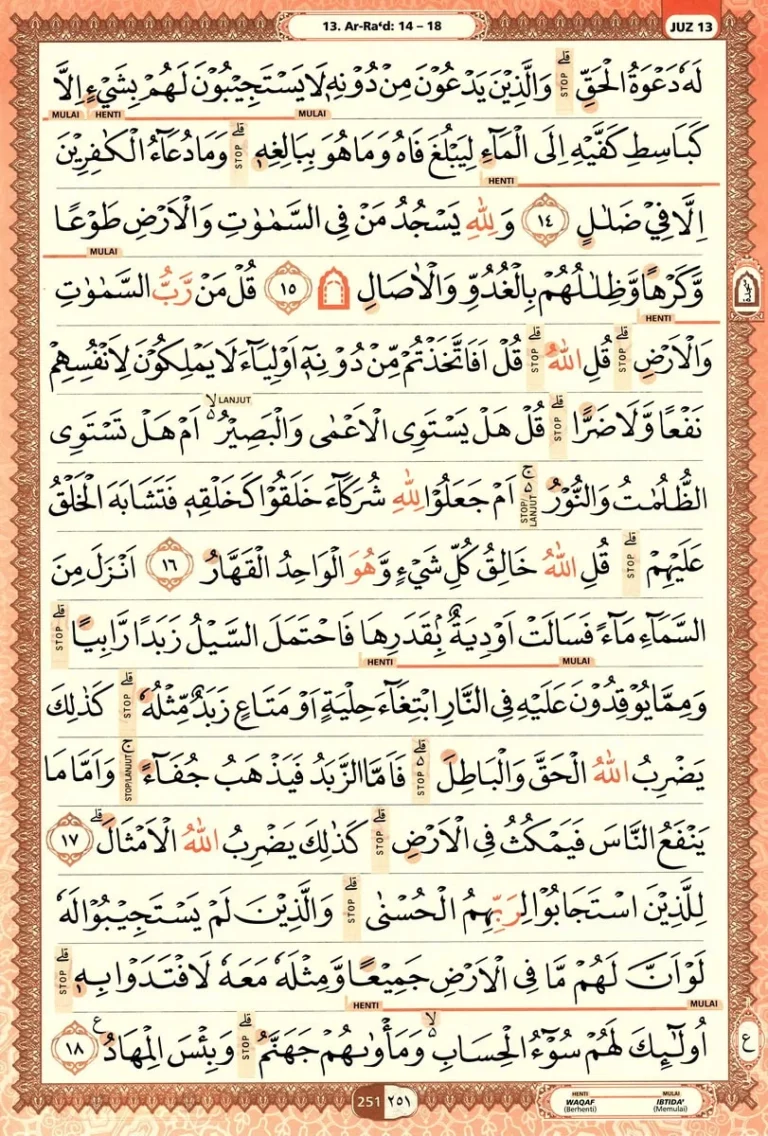 13. Ar-Ra‘d: 14 – 18
JUZ 13
لَهٗ دَعْوَةُ الْحَقِّۗ وَالَّذِيْنَ يَدْعُوْنَ مِنْ دُوْنِهٖ لَا يَسْتَجِيْبُوْنَ لَهُمْ بِشَيْءٍ اِلَّا
STOP
MULAI HENTI MULAI
كَبَاسِطِ كَفَّيْهِ اِلَى الْمَاۤءِ لِيَبْلُغَ فَاهُ وَمَا هُوَ بِبَالِغِهٖۗ وَمَا دُعَاۤءُ الْكٰفِرِيْنَ
STOP
HENTI
اِلَّا فِيْ ضَلٰلٍ ١٤ وَلِلّٰهِ يَسْجُدُ مَنْ فِى السَّمٰوٰتِ وَالْاَرْضِ طَوْعًا
MULAI
وَّكَرْهًا وَّظِلٰلُهُمْ بِالْغُدُوِّ وَالْاٰصَالِ ۩ ١٥ قُلْ مَنْ رَّبُّ السَّمٰوٰتِ
سجدة
HENTI
وَالْاَرْضِۗ قُلِ اللّٰهُ ۗقُلْ اَفَاتَّخَذْتُمْ مِّنْ دُوْنِهٖٓ اَوْلِيَاۤءَ لَا يَمْلِكُوْنَ لِاَنْفُسِهِمْ
STOP STOP
نَفْعًا وَّلَا ضَرًّاۗ قُلْ هَلْ يَسْتَوِى الْاَعْمٰى وَالْبَصِيْرُ ەۙ اَمْ هَلْ تَسْتَوِى
STOP LANJUT
الظُّلُمٰتُ وَالنُّوْرُ ەۚ اَمْ جَعَلُوْا لِلّٰهِ شُرَكَاۤءَ خَلَقُوْا كَخَلْقِهٖ فَتَشَابَهَ الْخَلْقُ
STOP/LANJUT
عَلَيْهِمْۗ قُلِ اللّٰهُ خَالِقُ كُلِّ شَيْءٍ وَّهُوَ الْوَاحِدُ الْقَهَّارُ ١٦ اَنْزَلَ مِنَ
STOP
السَّمَاۤءِ مَاۤءً فَسَالَتْ اَوْدِيَةٌ ۢ بِقَدَرِهَا فَاحْتَمَلَ السَّيْلُ زَبَدًا رَّابِيًاۗ
STOP
HENTI MULAI
وَمِمَّا يُوْقِدُوْنَ عَلَيْهِ فِى النَّارِ ابْتِغَاۤءَ حِلْيَةٍ اَوْ مَتَاعٍ زَبَدٌ مِّثْلُهٗ ۗ كَذٰلِكَ
STOP
يَضْرِبُ اللّٰهُ الْحَقَّ وَالْبَاطِلَ ەۗ فَاَمَّا الزَّبَدُ فَيَذْهَبُ جُفَاۤءًۚ وَاَمَّا مَا
STOP STOP/LANJUT
يَنْفَعُ النَّاسَ فَيَمْكُثُ فِى الْاَرْضِۗ كَذٰلِكَ يَضْرِبُ اللّٰهُ الْاَمْثَالَۗ ١٧
STOP
لِلَّذِيْنَ اسْتَجَابُوْا لِرَبِّهِمُ الْحُسْنٰىۗ وَالَّذِيْنَ لَمْ يَسْتَجِيْبُوْا لَهٗ
STOP
لَوْ اَنَّ لَهُمْ مَّا فِى الْاَرْضِ جَمِيْعًا وَّمِثْلَهٗ مَعَهٗ لَافْتَدَوْا بِهٖۗ
STOP
HENTI MULAI
اُولٰۤىِٕكَ لَهُمْ سُوْۤءُ الْحِسَابِ ەۙ وَمَأْوٰىهُمْ جَهَنَّمُۗ وَبِئْسَ الْمِهَادُ ࣖ ١٨
STOP
ع
251 ٢٥١
HENTI
WAQAF
(Berhenti)
MULAI
IBTIDA'
(Memulai)